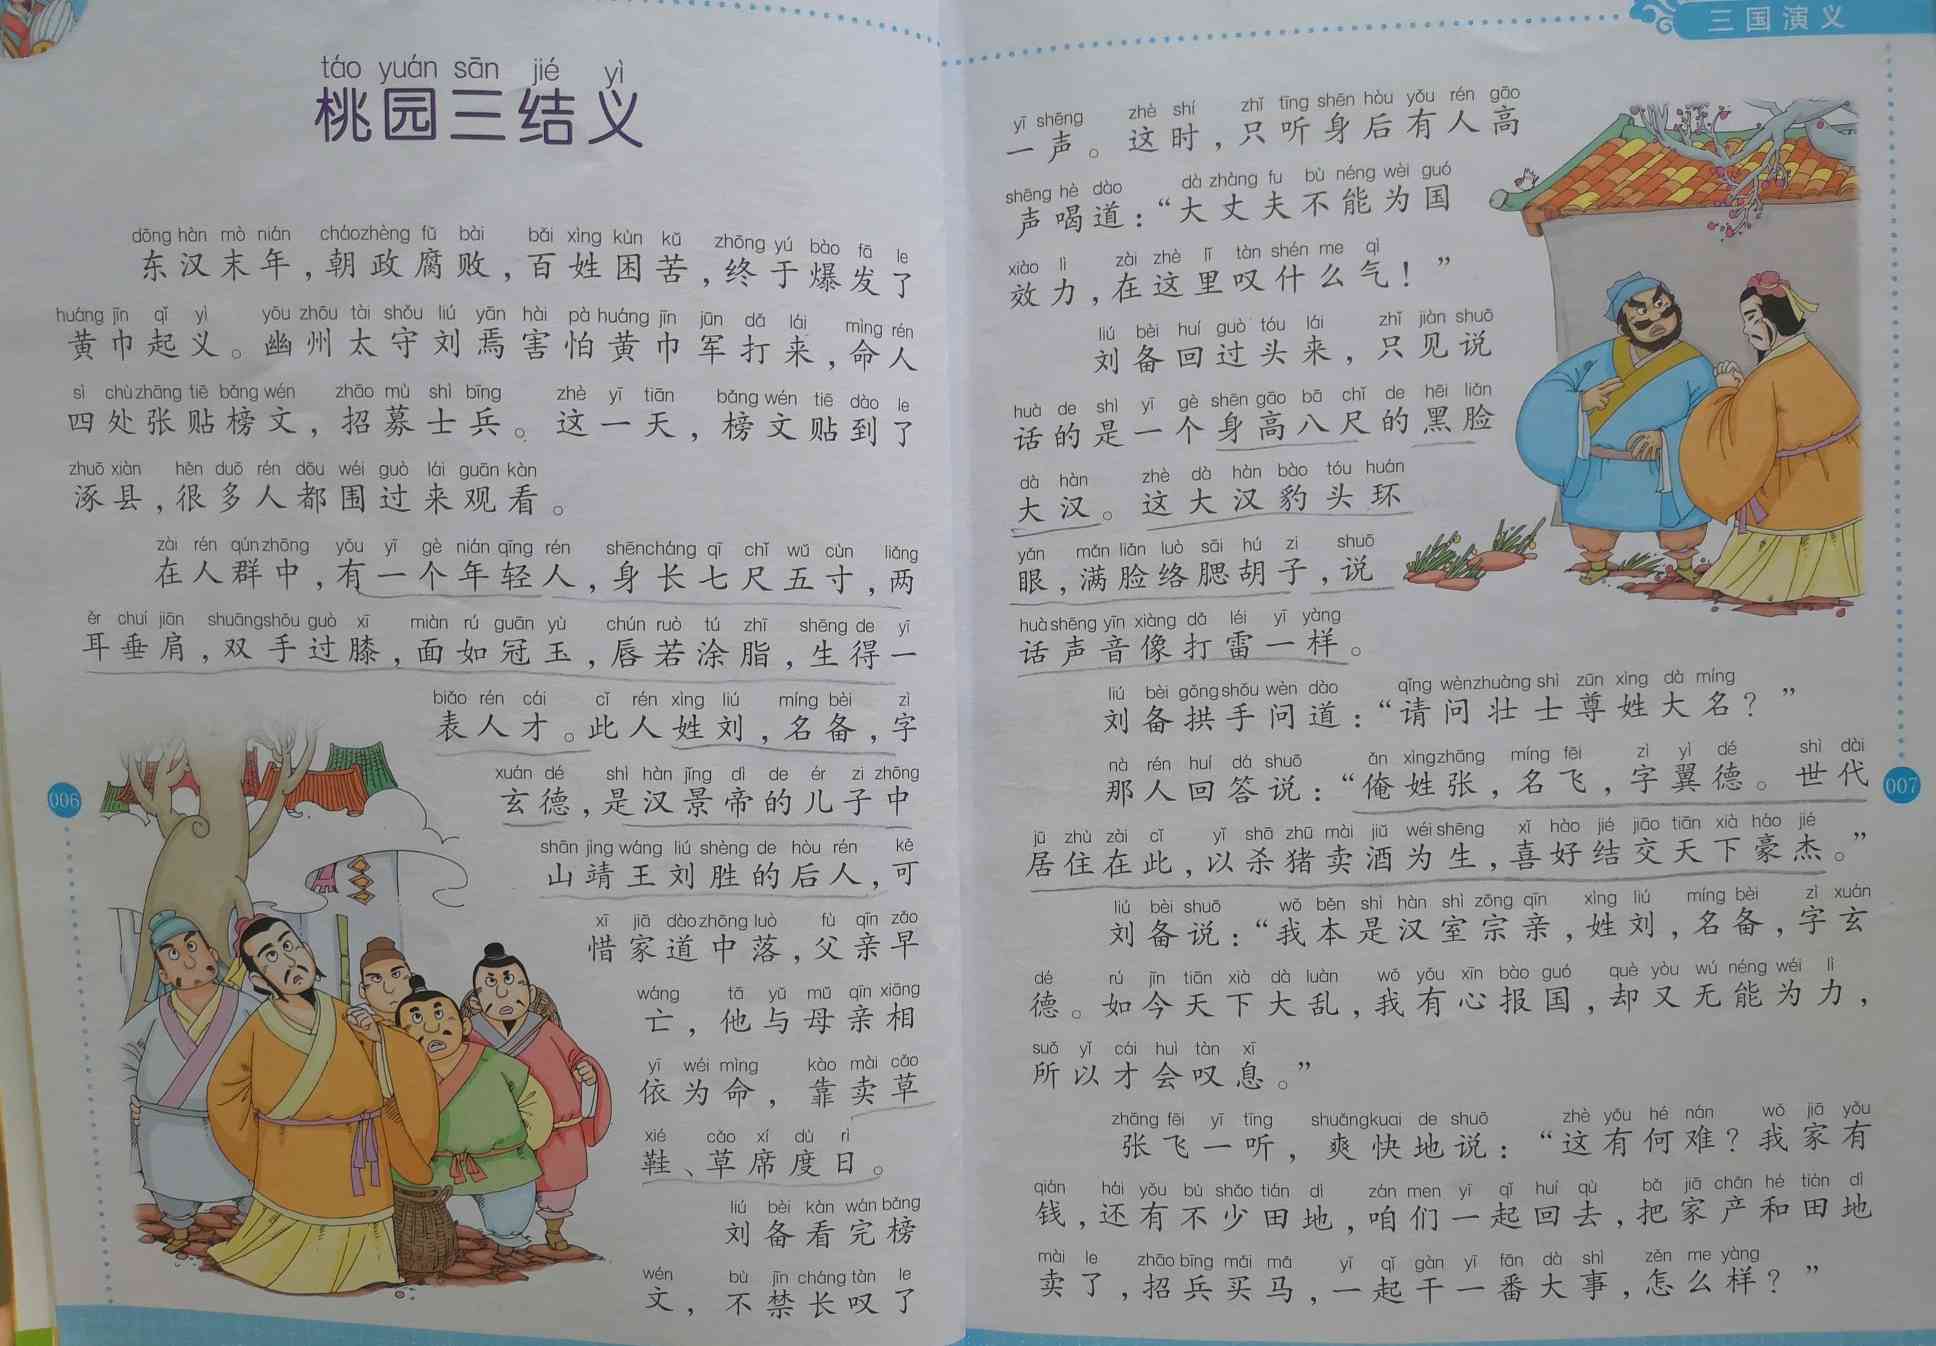 táo yuán sān jié yì
桃园三结义
dōng hàn mò nián cháozhèng fǔ bài bǎi xìng kùn kǔ zhōng yú bào fā le
东汉末年，朝政腐败，百姓困苦，终于爆发了
huáng jīn qǐ yì yōu zhōu tài shǒu liú yān hài pà huáng jīn jūn dǎ lái mìng rén
黄巾起义。幽州太守刘焉害怕黄巾军打来，命人
sì chù zhāng tiē bǎng wén zhāo mù shì bīng zhè yī tiān bǎng wén tiē dào le
四处张贴榜文，招募士兵。这一天，榜文贴到了
zhuō xiàn hěn duō rén dōu wéi guò lái guān kàn
涿县，很多人都围过来观看。
zài rén qún zhōng yǒu yī gè nián qīng rén shēn cháng qī chǐ wǔ cùn liǎng
在人群中，有一个年轻人，身长七尺五寸，两
ěr chuí jiān shuāng shǒu guò xī miàn rú guān yù chún ruò tú zhī shēng de yī
耳垂肩，双手过膝，面如冠玉，唇若涂脂，生得一
biǎo rén cái cǐ rén xìng liú míng bèi zì
表人才。此人姓刘，名备，字
xuán dé shì hàn jǐng dì de ér zi zhōng
玄德，是汉景帝的儿子中
shān jìng wáng liú shèng de hòu rén kě
山靖王刘胜的后人，可
xī jiā dào zhōng luò fù qīn zǎo
惜家道中落，父亲早
wáng tā yǔ mǔ qīn xiāng
亡，他与母亲相
yī wéi mìng kào mài cǎo
依为命，靠卖草
xié cǎo xí dù rì
鞋、草席度日。
liú bèi kàn wán bǎng
刘备看完榜
wén bù jīn cháng tàn le
文，不禁长叹了
006
三国演义
yī shēng zhè shí zhǐ tīng shēn hòu yǒu rén gāo
一声。这时，只听身后有人高
shēng hè dào dà zhàng fu bù néng wèi guó
声喝道：“大丈夫不能为国
xiào lì zài zhè lǐ tàn shén me qì
效力，在这里叹什么气！”
liú bèi huí guò tóu lái zhǐ jiàn shuō
刘备回过头来，只见说
huà de shì yī gè shēn gāo bā chǐ de hēi liǎn
话的是一个身高八尺的黑脸
dà hàn zhè dà hàn bào tóu huán
大汉。这大汉豹头环
yǎn mǎn liǎn luò sāi hú zi shuō
眼，满脸络腮胡子，说
huà shēng yīn xiàng dǎ léi yī yàng
话声音像打雷一样。
liú bèi gǒng shǒu wèn dào qǐng wèn zhuàng shì zūn xìng dà míng
刘备拱手问道：“请问壮士尊姓大名？”
nà rén huí dá shuō ǎn xìng zhāng míng fēi zì yì dé shì dài
那人回答说：“俺姓张，名飞，字翼德。世代
jū zhù zài cǐ yǐ shā zhū mài jiǔ wéi shēng xǐ hào jié jiāo tiān xià háo jié
居住在此，以杀猪卖酒为生，喜好结交天下豪杰。”
liú bèi shuō wǒ běn shì hàn shì zōng qīn xìng liú míng bèi zì xuán
刘备说：“我本是汉室宗亲，姓刘，名备，字玄
dé rú jīn tiān xià dà luàn wǒ yǒu xīn bào guó què yòu wú néng wéi lì
德。如今天下大乱，我有心报国，却又无能为力，
suǒ yǐ cái huì tàn xī
所以才会叹息。”
zhāng fēi yī tīng shuǎng kuai de shuō zhè yǒu hé nán wǒ jiā yǒu
张飞一听，爽快地说：“这有何难？我家有
qián hái yǒu bù shǎo tián dì zán men yī qǐ huí qù bǎ jiā chǎn hé tián dì
钱，还有不少田地，咱们一起回去，把家产和田地
mài le zhāo bīng mǎi mǎ yī qǐ gàn yī fān dà shì zěn me yàng
卖了，招兵买马，一起干一番大事，怎么样？”
007